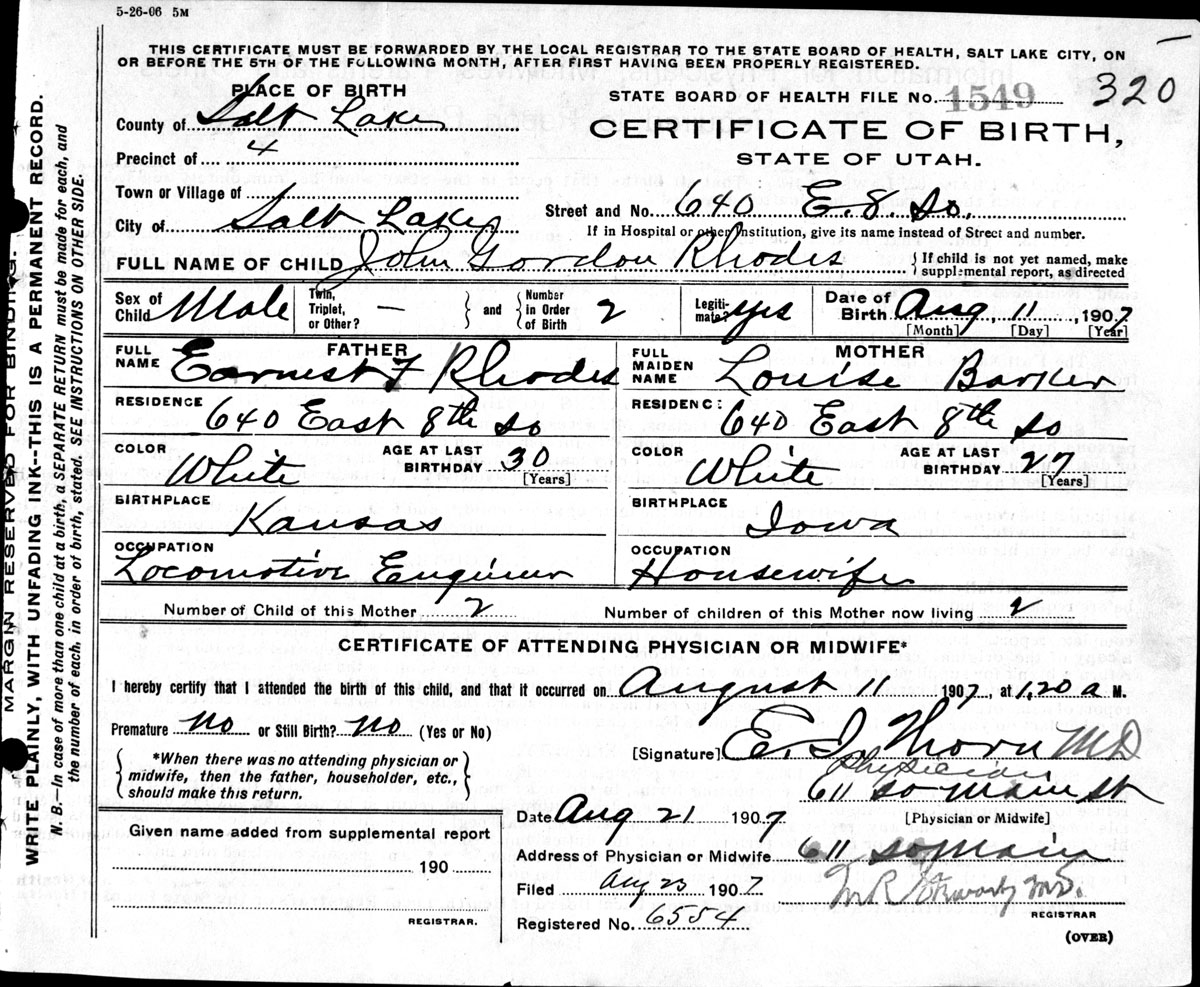 5-26-06 5M
THIS CERTIFICATE MUST BE FORWARDED BY THE LOCAL REGISTRAR TO THE STATE BOARD OF HEALTH, SALT LAKE CITY, ON
OR BEFORE THE 5TH OF THE FOLLOWING MONTH, AFTER FIRST HAVING BEEN PROPERLY REGISTERED.
PLACE OF BIRTH
STATE BOARD OF HEALTH FILE No. 1549 320
County of Salt Lake
CERTIFICATE OF BIRTH,
Precinct of 4
STATE OF UTAH.
Town or Village of
Street and No. 640 E. 8. So.
City of Salt Lake
If in Hospital or other Institution, give its name instead of Street and number.
FULL NAME OF CHILD John Gordon Rhodes
If child is not yet named, make
supplemental report, as directed
Sex of
Child Male
Twin,
Triplet,
or Other? —
and
Number
in Order
of Birth 2
Legiti-
mate? yes
Date of
Birth Aug 11, 1907
[Month] [Day] [Year]
FATHER
FULL
NAME Earnest F Rhodes
RESIDENCE 640 East 8th So
COLOR White
AGE AT LAST
BIRTHDAY 30
[Years]
BIRTHPLACE Kansas
OCCUPATION
Locomotive Engineer
MOTHER
FULL
MAIDEN
NAME Louise Barker
RESIDENCE: 640 East 8th So
COLOR White
AGE AT LAST
BIRTHDAY 27
[Years]
BIRTHPLACE Iowa
OCCUPATION
Housewife
Number of Child of this Mother 2
Number of children of this Mother now living 2
CERTIFICATE OF ATTENDING PHYSICIAN OR MIDWIFE*
I hereby certify that I attended the birth of this child, and that it occurred on August 11 1907, at 1.20 a M.
Premature no or Still Birth? no (Yes or No)
[Signature] E. I. Thorn MD
*When there was no attending physician or
midwife, then the father, householder, etc.,
should make this return.
Physician
611 So Main St
[Physician or Midwife]
Date Aug 21 1907
Given name added from supplemental report
190
REGISTRAR.
Address of Physician or Midwife 611 So Main
Filed Aug 23 1907
M.D.
REGISTRAR
Registered No. 6554
(OVER)
MARGIN RESERVED FOR BINDING.
WRITE PLAINLY, WITH UNFADING INK--THIS IS A PERMANENT RECORD.
N. B.—In case of more than one child at a birth, a SEPARATE RETURN must be made for each, and
the number of each, in order of birth, stated. SEE INSTRUCTIONS ON OTHER SIDE.